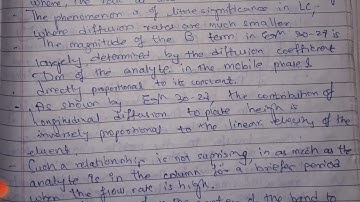 where, the
- The phenomenon is of little significance in LC,
where diffusion rates are much smaller.
- The magnitude of the B term in Eqn 30-27 is
largely determined by the diffusion coefficient
Dm of the analyte in the mobile phase &
directly proportional to its constant.
- As shown by Eqn 30-27, the contribution of
longitudinal diffusion to plate height is
inversely proportional to the linear velocity of the
eluent.
- Such a relationship is not suprising in as much as the
analyte is in the column for a briefer period
when the flow rate is high.
of the band to